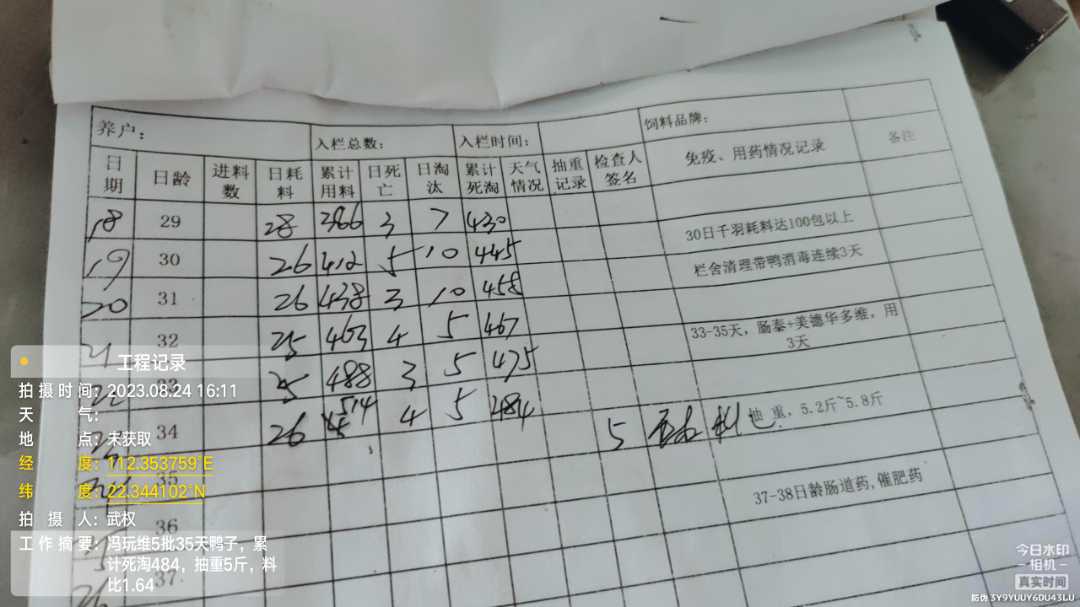 养户： 入栏总数： 入栏时间： 饲料品牌：
日期 日龄 进料数 日耗料 累计用料 日死亡 日淘汰 累计死淘 天气情况 抽重记录 检查人签名 免疫、用药情况记录 备注
18 29 28 386 3 7 430
19 30 26 412 5 10 445 30日千羽耗料达100包以上
20 31 26 438 3 10 458 栏舍清理带鸭消毒连续3天
21 32 25 463 4 5 467 33-35天，肠泰+美德华多维，用3天
22 33 25 488 3 5 475
34 26 514 4 5 484 5 重，5.2斤~5.8斤
35
36 37-38日龄肠道药,催肥药
37
工程记录
拍摄时间：2023.08.24 16:11
天气：
地点：未获取
经度：112.353759°E
纬度：22.344102°N
拍摄人：武权
工作摘要：冯玩维5批35天鸭子，累
计死淘484，抽重5斤，料
比1.64
今日水印
相机
真实时间
防伪 3Y9YUUY6DU43LU